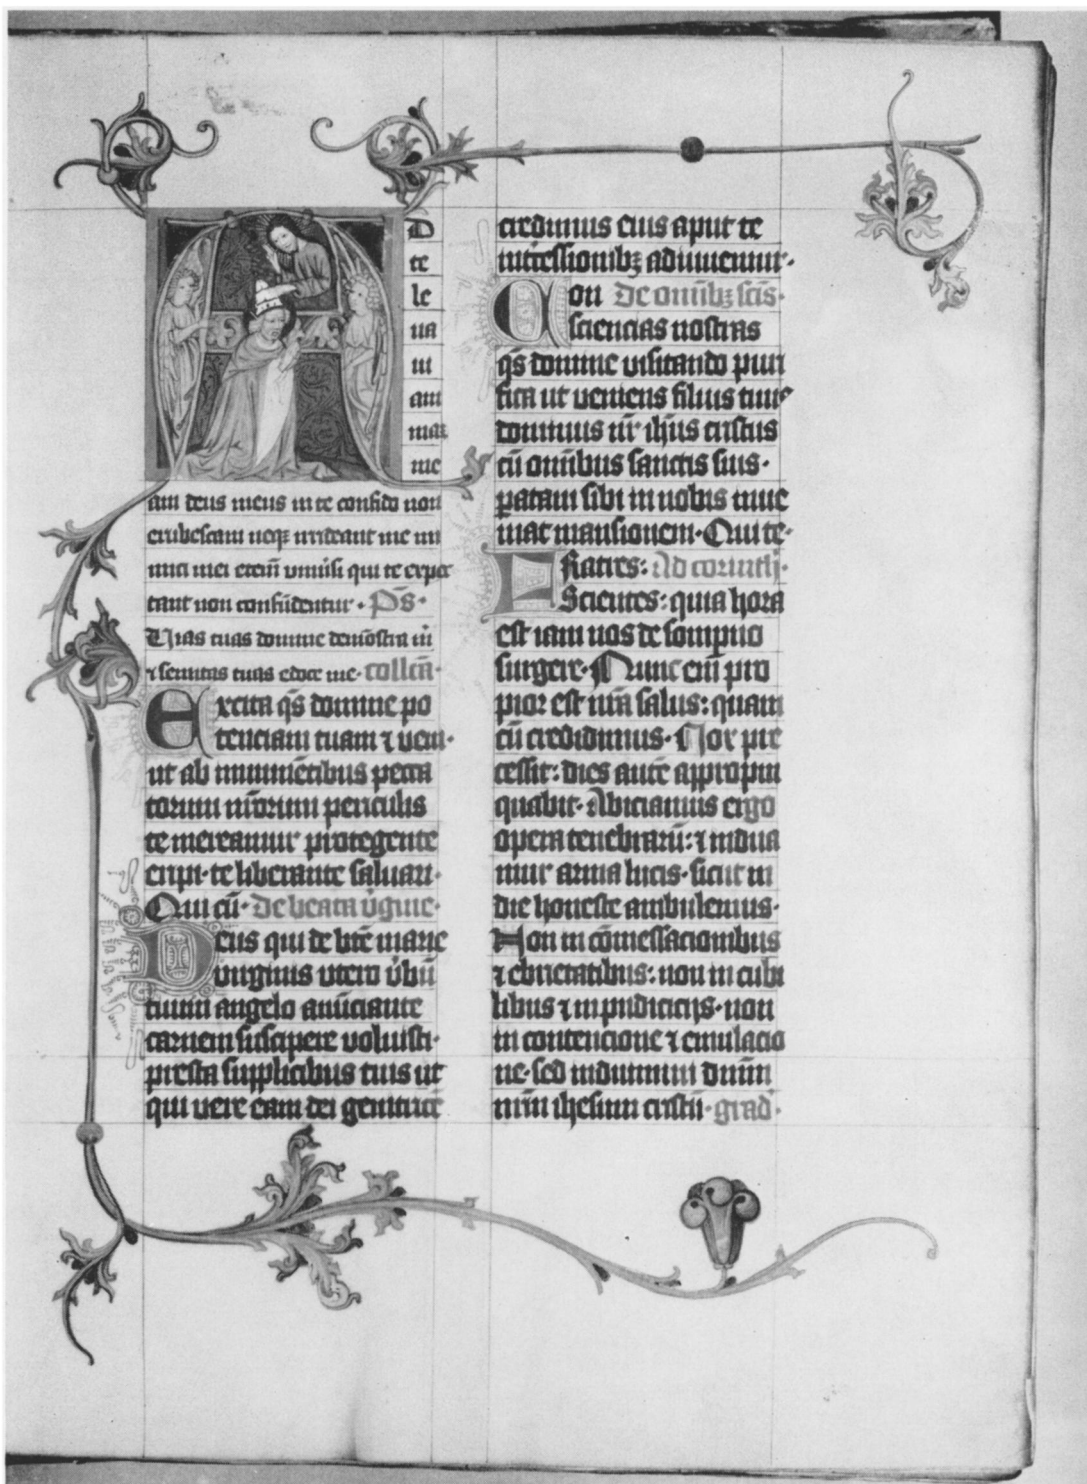 D
te
le
ua
ui
ani
mam
me
am deus meus in te confido non
erubescam neqz irrideant me ini
mici mei etem̄ uniu̇si qui te expec
tant non confūdentur · P̄s ·
Uias tuas domine demōstra m̄
⁊ semitas tuas edoce me · collcn̄ ·
Excita qs̄ domine po
tenciam tuam ⁊ ueni ·
ut ab imminētibus pecca
torum nr̄orum periculis
te mereamur protegente
eripi · te liberante saluari ·
Qui cū · De beata u̇gine ·
Deus qui de bt̄e marie
uirginis utero u̇bū
tuum angelo anūciante
carnem suscipere voluisti ·
presta supplicibus tuis ut
qui vere eam dei genitricē
credimus eius aput te
intercessionibz adiuuemur ·
Con De omībz scīs ·
sciencias nostras
qs̄ domine visitando puri
fica ut ueniens filius tuus
dominus nr̄ ihūs cristus
cū omībus sanctis suis ·
paratam sibi in nobis inue
niat mansionem · Qui te ·
Fratres : Ad corinth ·
Scientes : quia hora
est iam nos de sompno
surgere · Nunc eni̅ pro
pior est nr̄a salus : quam
cū credidimus · Nox pre
cessit : dies autē appropin
quabit · Abiciamus ergo
opera tenebrarū : ⁊ indua
mur arma lucis · sicut in
die honeste ambulemus ·
Non in cōmessacionibus
⁊ ebrietatibus : non in cubi
libus ⁊ inpudicicijs · non
in contencione ⁊ emulacio
ne · sed induimini dnm̄
nr̄m ihesum cristū · grad̄ ·